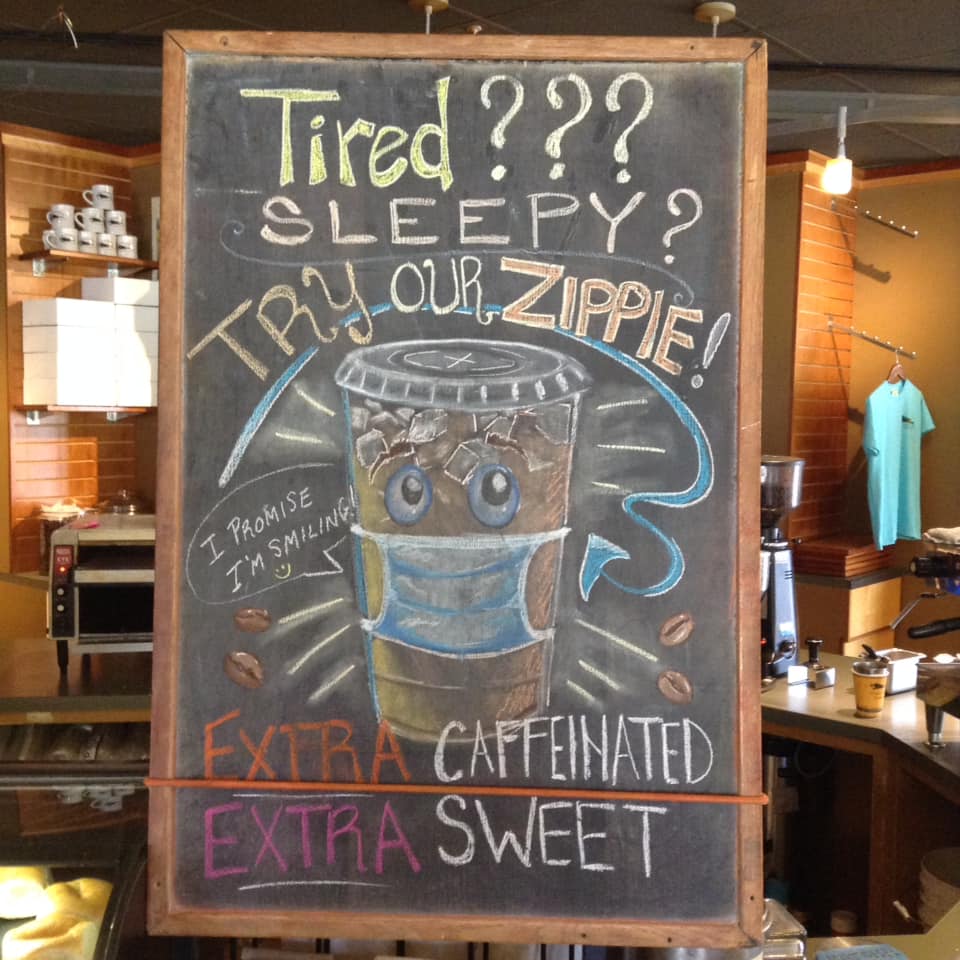 Tired ???
SLEEPY?
TRY OUR ZIPPIE!
I PROMISE
I'M SMILING!
EXTRA CAFFEINATED
EXTRA SWEET